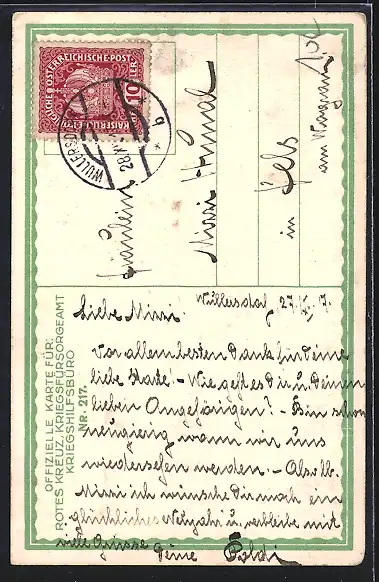 KAISERLICHE KÖNIGLICHE ÖSTERREICHISCHE POST
10 HELLER
WULLERSDORF
28.XII
b
Fräulein
Mizzi
in Fels
am Wagram
N.Ö.
OFFIZIELLE KARTE FÜR:
ROTES KREUZ, KRIEGSFÜRSORGEAMT
KRIEGSHILFSBÜRO
NR. 217.
Wullersdorf 27.XII.17.
Liebe Mizzi!
Vor allem besten Dank für Deine
liebe Karte! - Wie geht es Dir u. Deinen
lieben Angehörigen? - Bin schon
neugierig wann wir uns
wiedersehen werden. - Also lb.
Mizzi ich wünsche Dir noch ein
glückliches Neujahr u. verbleibe mit
viele Grüsse Deine Poldi